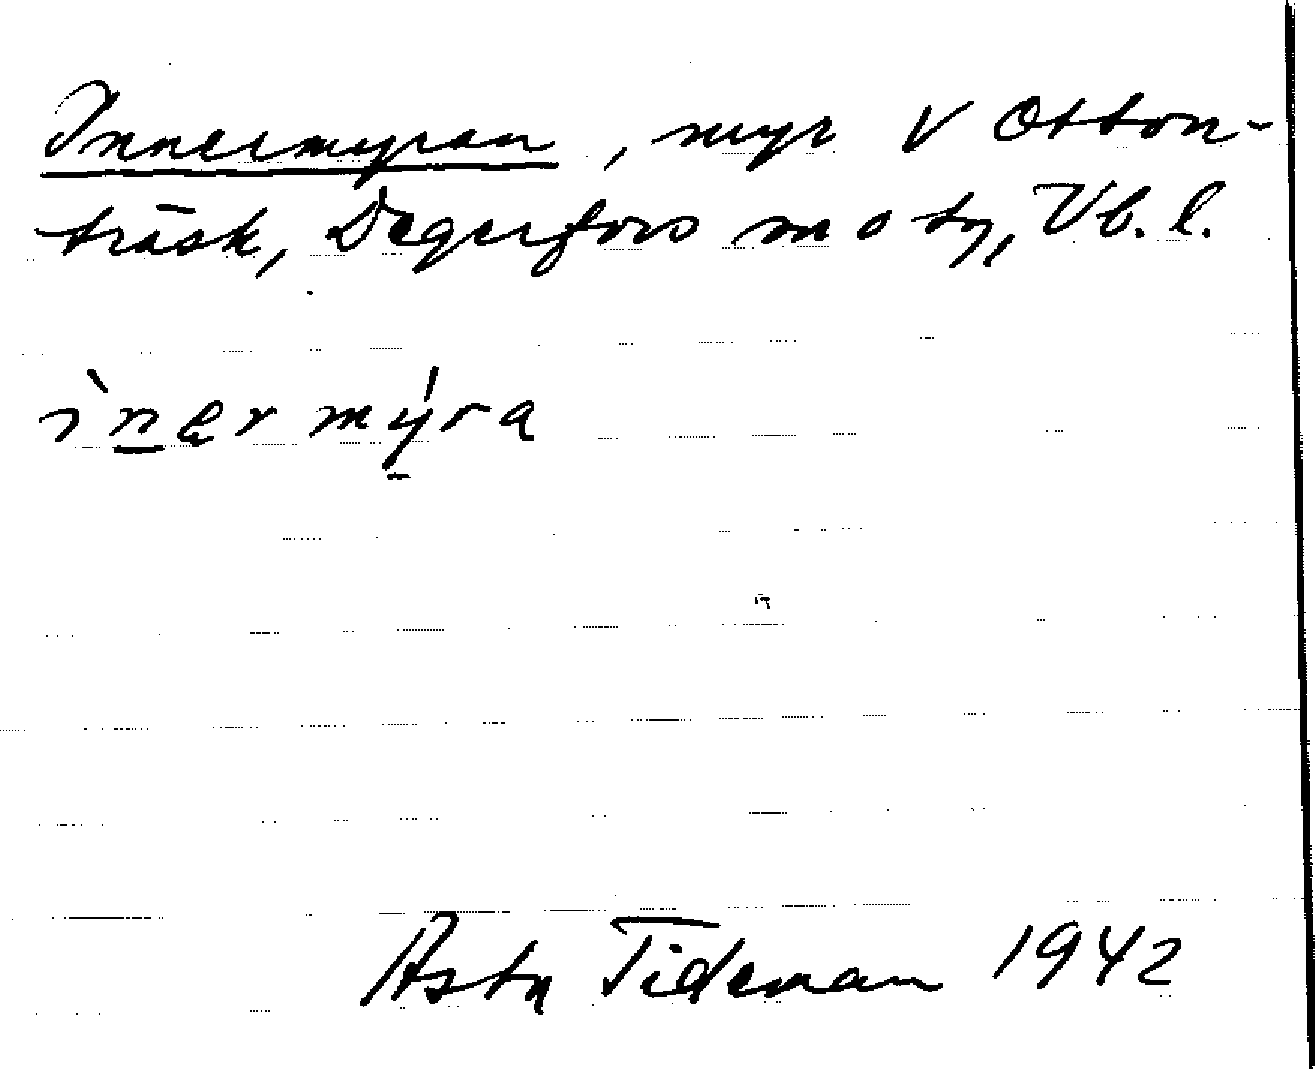 Innermyran, myr V Otton-
träsk, Degerfors sn o tg, Vb. l.
ìn̲er mý̲ra
Asta Tideman 1942